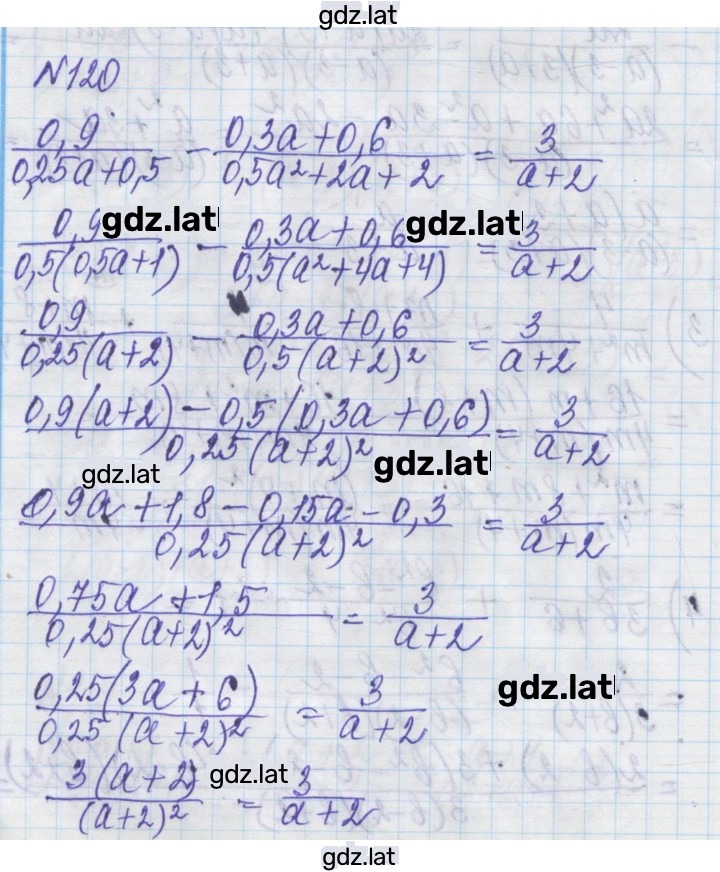 gdz.lat
№120
0,9/(0,25a+0,5) − (0,3a+0,6)/(0,5a²+2a+2) = 3/(a+2)
0,9/(0,5(0,5a+1)) − (0,3a+0,6)/(0,5(a²+4a+4)) = 3/(a+2)
gdz.lat gdz.lat
0,9/(0,25(a+2)) − (0,3a+0,6)/(0,5(a+2)²) = 3/(a+2)
(0,9(a+2)−0,5(0,3a+0,6))/(0,25(a+2)²) = 3/(a+2)
gdz.lat gdz.lat
(0,9a+1,8−0,15a−0,3)/(0,25(a+2)²) = 3/(a+2)
(0,75a+1,5)/(0,25(a+2)²) = 3/(a+2)
(0,25(3a+6))/(0,25(a+2)²) = 3/(a+2)
gdz.lat
(3(a+2))/((a+2)²) = 3/(a+2)
gdz.lat
gdz.lat